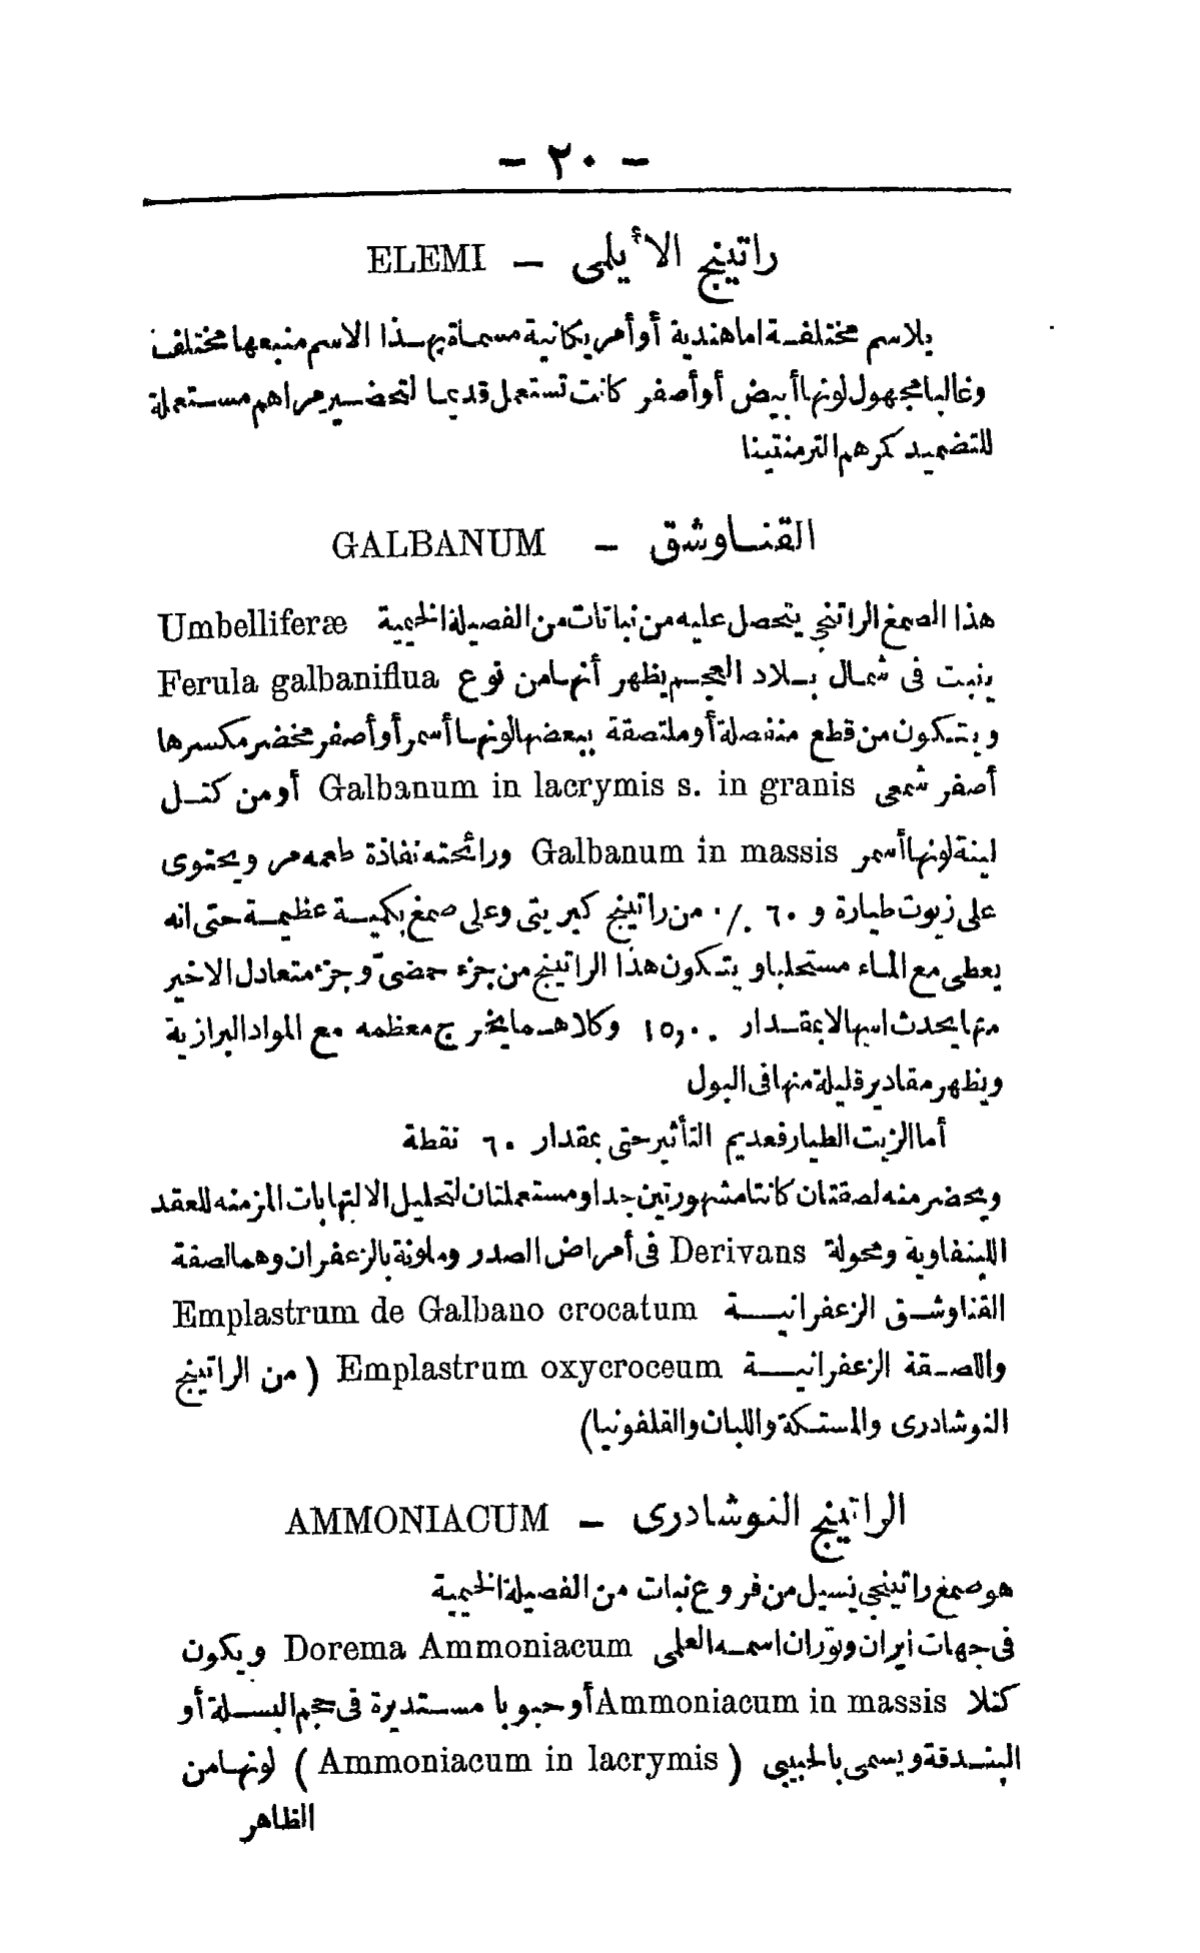 - ٢٠ -
راتينج الأيلمى - ELEMI
بلاسم مختلفة اما هندية أو أمريكانية مسماة بهذا الاسم منبعها مختلف
وغالبا مجهول لونها أبيض أو أصفر كانت تستعمل قديما لتحضير مراهم مستعملة
للتضميد كمرهم الترمنتينا
القناوشق - GALBANUM
هذا الصمغ الراتنجي يتحصل عليه من نباتات من الفصيلة الخيمية Umbelliferæ
ينبت فى شمال بلاد العجم يظهر أنها من نوع Ferula galbaniflua
ويتكون من قطع منفصلة أو ملتصقة ببعضها لونها أسمر أو أصفر مخضر مكسرها
أصفر شمعى Galbanum in lacrymis s. in granis أو من كتل
لينة لونها أسمر Galbanum in massis ورائحته نفاذة طعمه مر ويحتوى
على زيوت طيارة و ٦٠ ٪ من راتينج كبريتى وعلى صمغ بكمية عظيمة حتى انه
يعطى مع الماء مستحلبا ويتكون هذا الراتينج من جزء حمضىّ وجزء متعادل الاخير
منها يحدث اسهالا بمقدار ١٥,٠٠ وكلاهما يخرج معظمه مع المواد البرازية
ويظهر مقادير قليلة منها فى البول
أما الزيت الطيار فعديم التأثير حتى بمقدار ٦٠ نقطة
ويحضر منه لصقتان كانتا مشهورتين جدا ومستعملتان لتحليل الالتهابات المزمنه للعقد
اللينفاوية ومحولة Derivans فى أمراض الصدر وملونة بالزعفران وهما لصقة
القناوشق الزعفرانية Emplastrum de Galbano crocatum
واللصقة الزعفرانية Emplastrum oxycroceum (من الراتينج
النوشادرى والمستكة واللبان والقلفونيا)
الراتينج النوشادرى - AMMONIACUM
هو صمغ راتينجى يسيل من فروع نبات من الفصيلة الخيمية
فى جهات ايران وتوران اسمه العلمى Dorema Ammoniacum ويكون
كتلا Ammoniacum in massis أو حبوبا مستديرة فى حجم البسلة أو
البندقة ويسمى بالحبيبى (Ammoniacum in lacrymis) لونها من
الظاهر